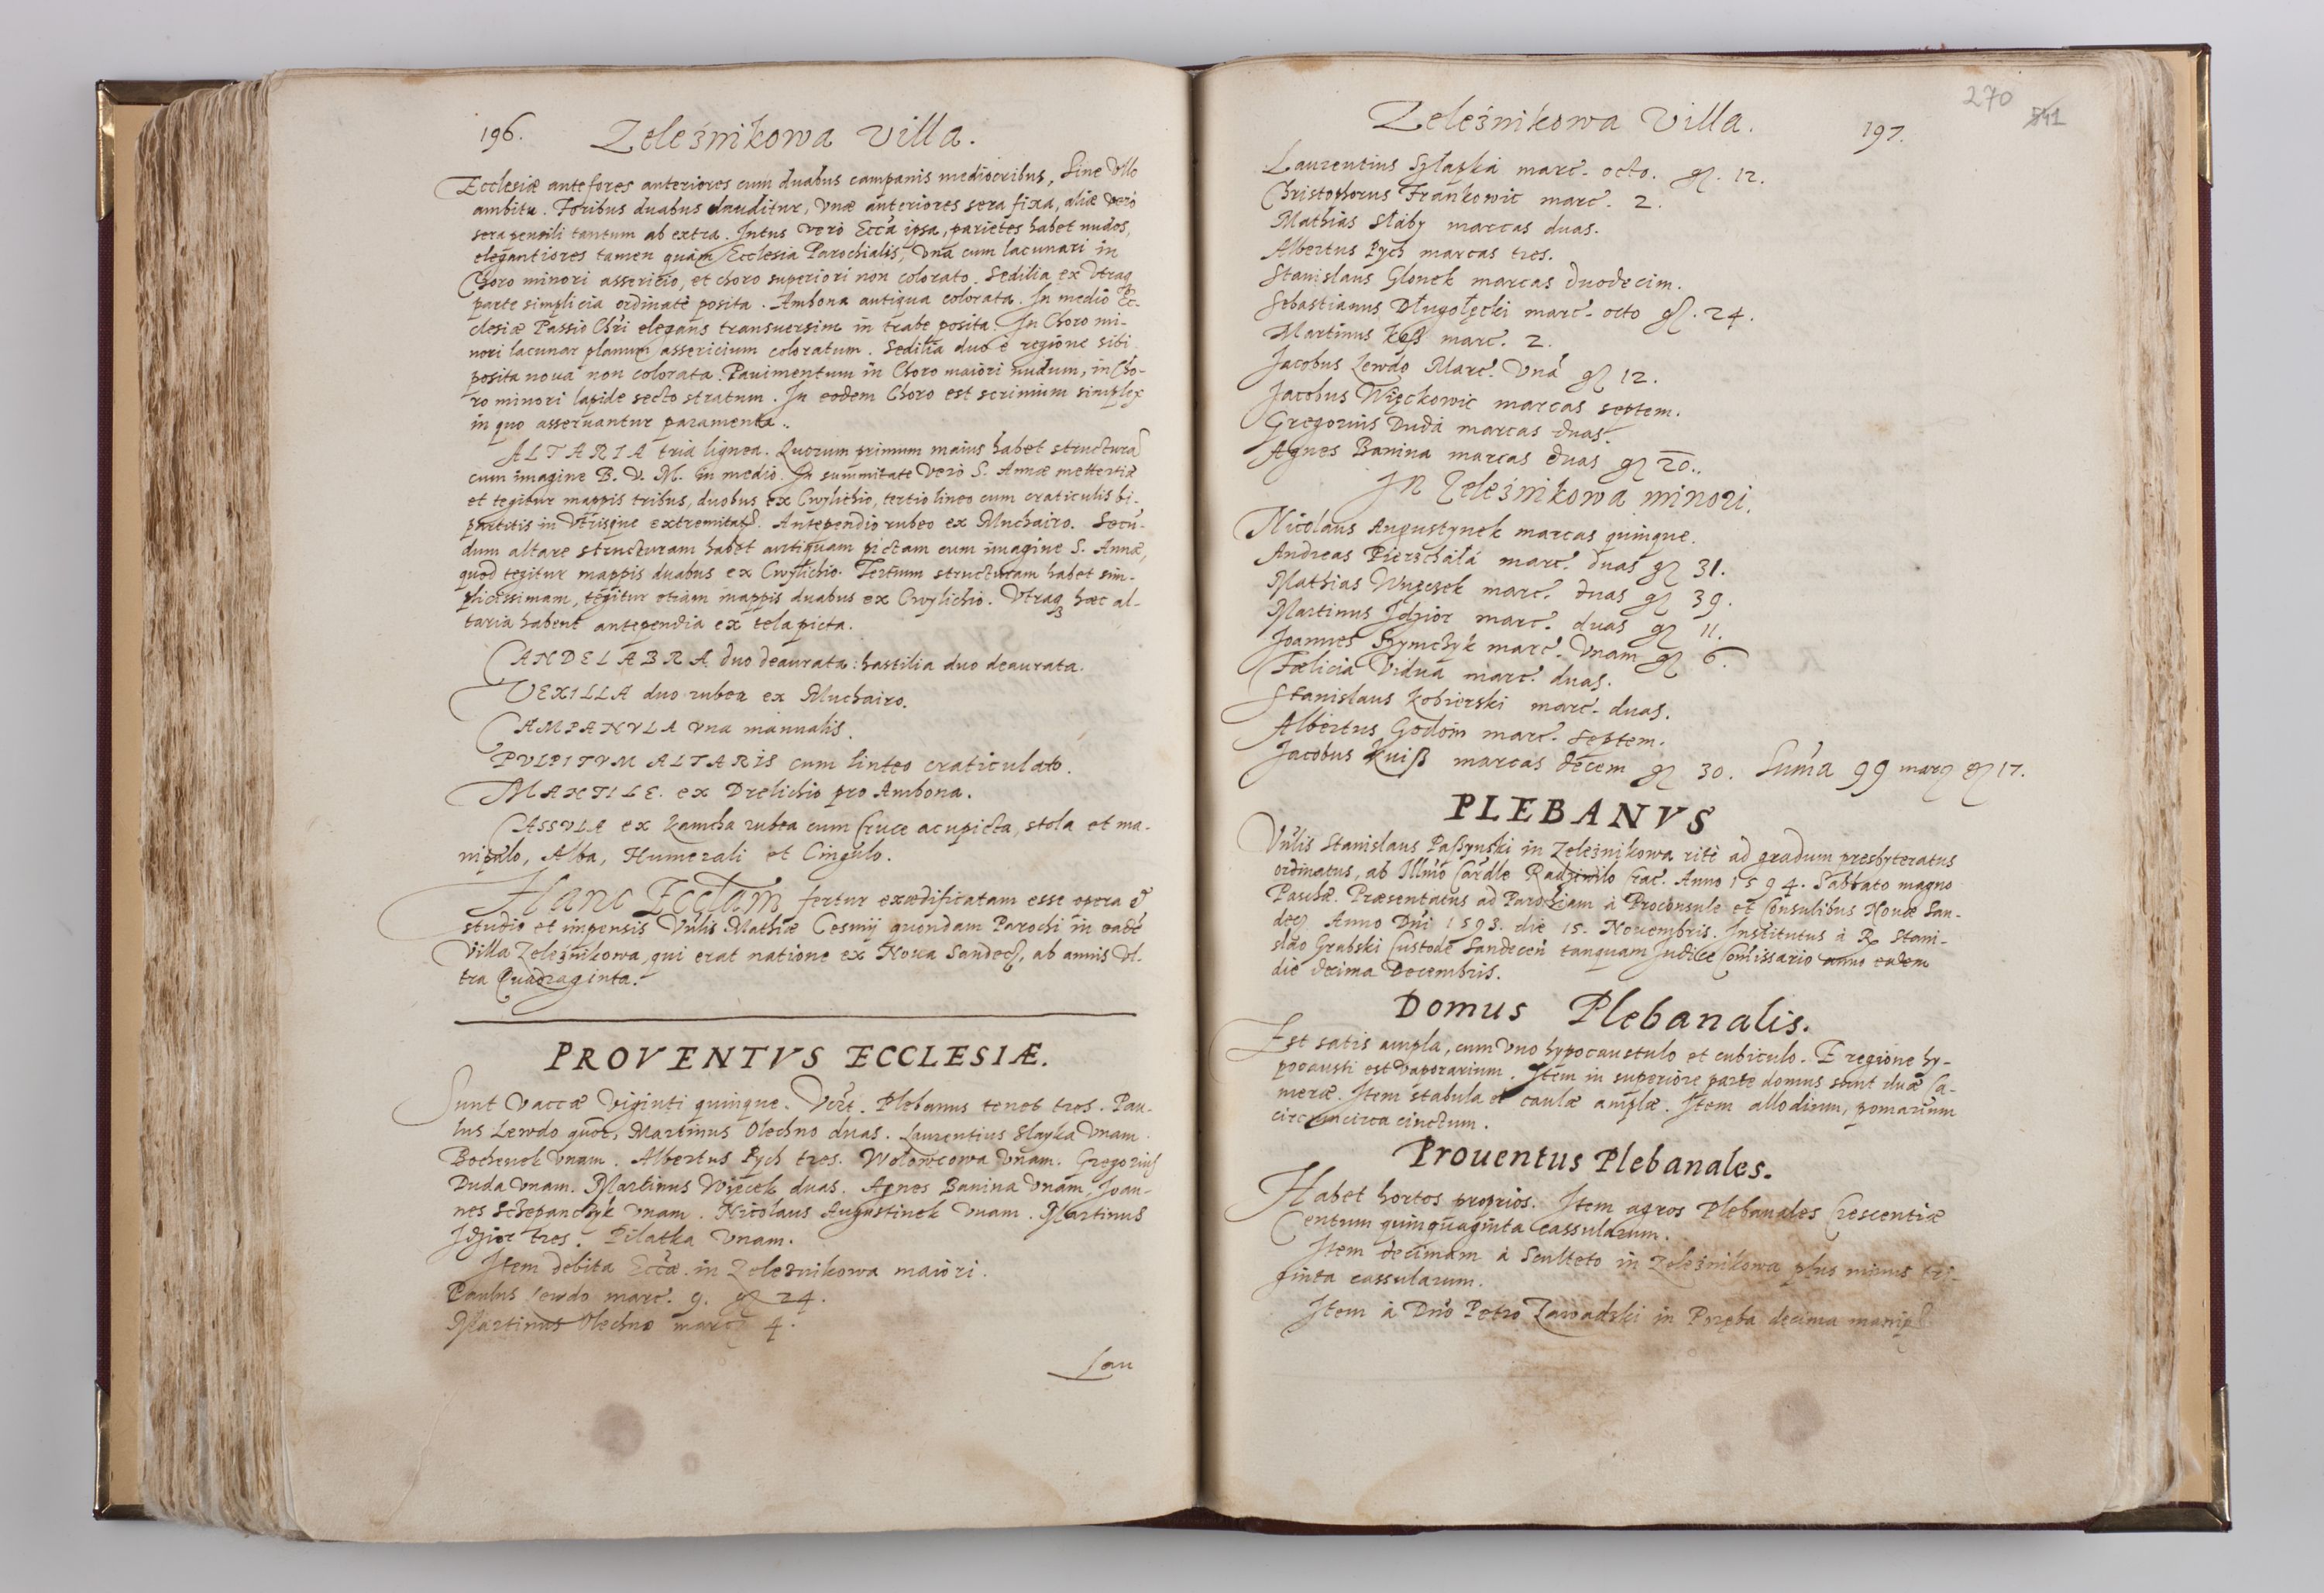 196. Zeleźnikowa Villa.
Ecclesiæ ante fores anteriores cum duabus campanis mediocribus, Sine Vllo
ambitu. Foribus duabus clauditur, Vnæ anteriores sera fixa, aliæ verò
sera pensili tantum ab extra. Intus verò Eccã ipsa, parietes habet nudos,
elegantiores tamen quàm Ecclesia Parochialis, Vnà cum lacunari in
Choro minori assericio, et choro superiori non colorato. Sedilia ex Vtraq
parte simplicia ordinatè posita. Ambona antiqua colorata. In medio Ec-
clesiæ Passio Chri elegans transuersim in trabe posita. In Choro mi-
nori lacunar planum assericium coloratum. Sedilia duo è regione sibi
posita noua non colorata. Pauimentum in Choro maiori nudum, in Cho-
ro minori lapide secto stratum. In eodem Choro est scrinium simplex
in quo asseruantur paramenta.
ALTARIA tria lignea. Quorum primum maius habet structurã
cum imagine B. V. M. in medio. In summitate verò S. Annæ mettertiæ
et tegitur mappis tribus, duobus ex Cwylichio, tertio lineo cum craticulis bi-
partitis in Vtrisque extremitat. Antependio rubeo ex Muchairo. Secũ-
dum altare structuram habet antiquam pictam cum imagine S. Annæ,
quod tegitur mappis duabus ex Cwylichio. Tertium structuram habet sim-
plicissimam, tegitur etiam mappis duabus ex Cwylichio. Vtraq hæc al-
taria habent antependia ex tela picta.
CANDELABRA duo deaurata: hastilia duo deaurata.
VEXILLA duo rubea ex Muchairo.
CAMPANVLA Vna manualis.
PVLPITVM ALTARIS cum linteo craticulato.
MANTILE. ex Drelichio pro Ambona.
CASSVLA ex Kamcha rubea cum Cruce acupicta, stola et ma-
nipulo, Alba, Humerali et Cingulo.
Hanc Ecclam fertur exædificatam esse opera &
studio et impensis Vnlis Mathiæ Cesmij quondam Parochi in eadẽ
Villa Zeleźnikowa, qui erat natione ex Noua Sandec, ab annis Vl-
tra Quadraginta.
PROVENTVS ECCLESIÆ.
Sunt Vaccæ Viginti quinque. Vert. Plebanus tenet tres. Pau-
lus Lewdo quoe, Martinus Olechno duas. Laurentius Slapka Vnam.
Bochenek Vnam. Albertus Pych tres. Wolowcowa Vnam. Gregorius
Duda Vnam. Martinus Więcek duas. Agnes Banina Vnam, Joan-
nes Schepanczyk Vnam. Nicolaus Augustinek Vnam. Martinus
Idzior tres. Pilatka Vnam.
Item debita Eccæ in Zeleznikowa maiori.
Paulus Lewdo marc. 9. gr 24.
Martinus Olechno marc 4.
Lau
270
541
Zeleźnikowa Villa. 197.
Laurentius Szlapka marc. octo. gr. 12.
Christophorus Frankowic marc. 2.
Mathias Slaby marcas duas.
Albertus Pych marcas tres.
Stanislaus Glonek marcas duodecim.
Sebastianus Długołęcki marc. octo gr. 24.
Martinus Kęß marc. 2.
Jacobus Lewdo Marc. Vnã gr 12.
Jacobus Więckowic marcas septem.
Gregorius Duda marcas duas.
Agnes Banina marcas duas gr 20.
In Zeleźnikowa minori.
Nicolaus Augustynek marcas quinque.
Andreas Pierzchałá marc. duas gr 31.
Mathias Wnęcsek marc. duas gr 39.
Martinus Idzior marc. duas gr 11.
Joannes Szymczyk marc. Vnam gr 6.
Fælicia Vidua marc. duas.
Stanislaus Kobierski marc. duas.
Albertus Godoin marc. septem.
Jacobus Kniß marcas decem gr 30. Suma 99 marc gr 17.
PLEBANVS
Vnlis Stanislaus Paßynski in Zeleźnikowa ritè ad gradum presbyteratus
ordinatus, ab Illmo Cardle Radziwilo Crac. Anno 1594. Sabbato magno
Paschæ. Præsentatus ad Parochiam à Proconsule et Consulibus Nouæ San-
dec Anno Dni 1593. die 15. Nouembris. Institutus à R Stani-
slao Grabski Custode Sandecen tanquam Judice Comissario anno eadem
die decima Decembris.
Domus Plebanalis.
Est satis ampla, cum Vno hypocaustulo et cubiculo. E regione hy-
pocausti est Vaporarium. Item in superiore parte domus sunt duæ Ca-
meræ. Item stabula et caulæ amplæ. Item allodium, pomarium
circumcirca cinctum.
Prouentus Plebanales.
Habet hortos proprios. Item agros Plebanales Crescentiæ
Centum quinquaginta cassularum.
Item decimam à Sculteto in Zeleźnikowa plus minus tri-
ginta cassularum.
Item à Dno Petro Zawadski in Poręba decima manip